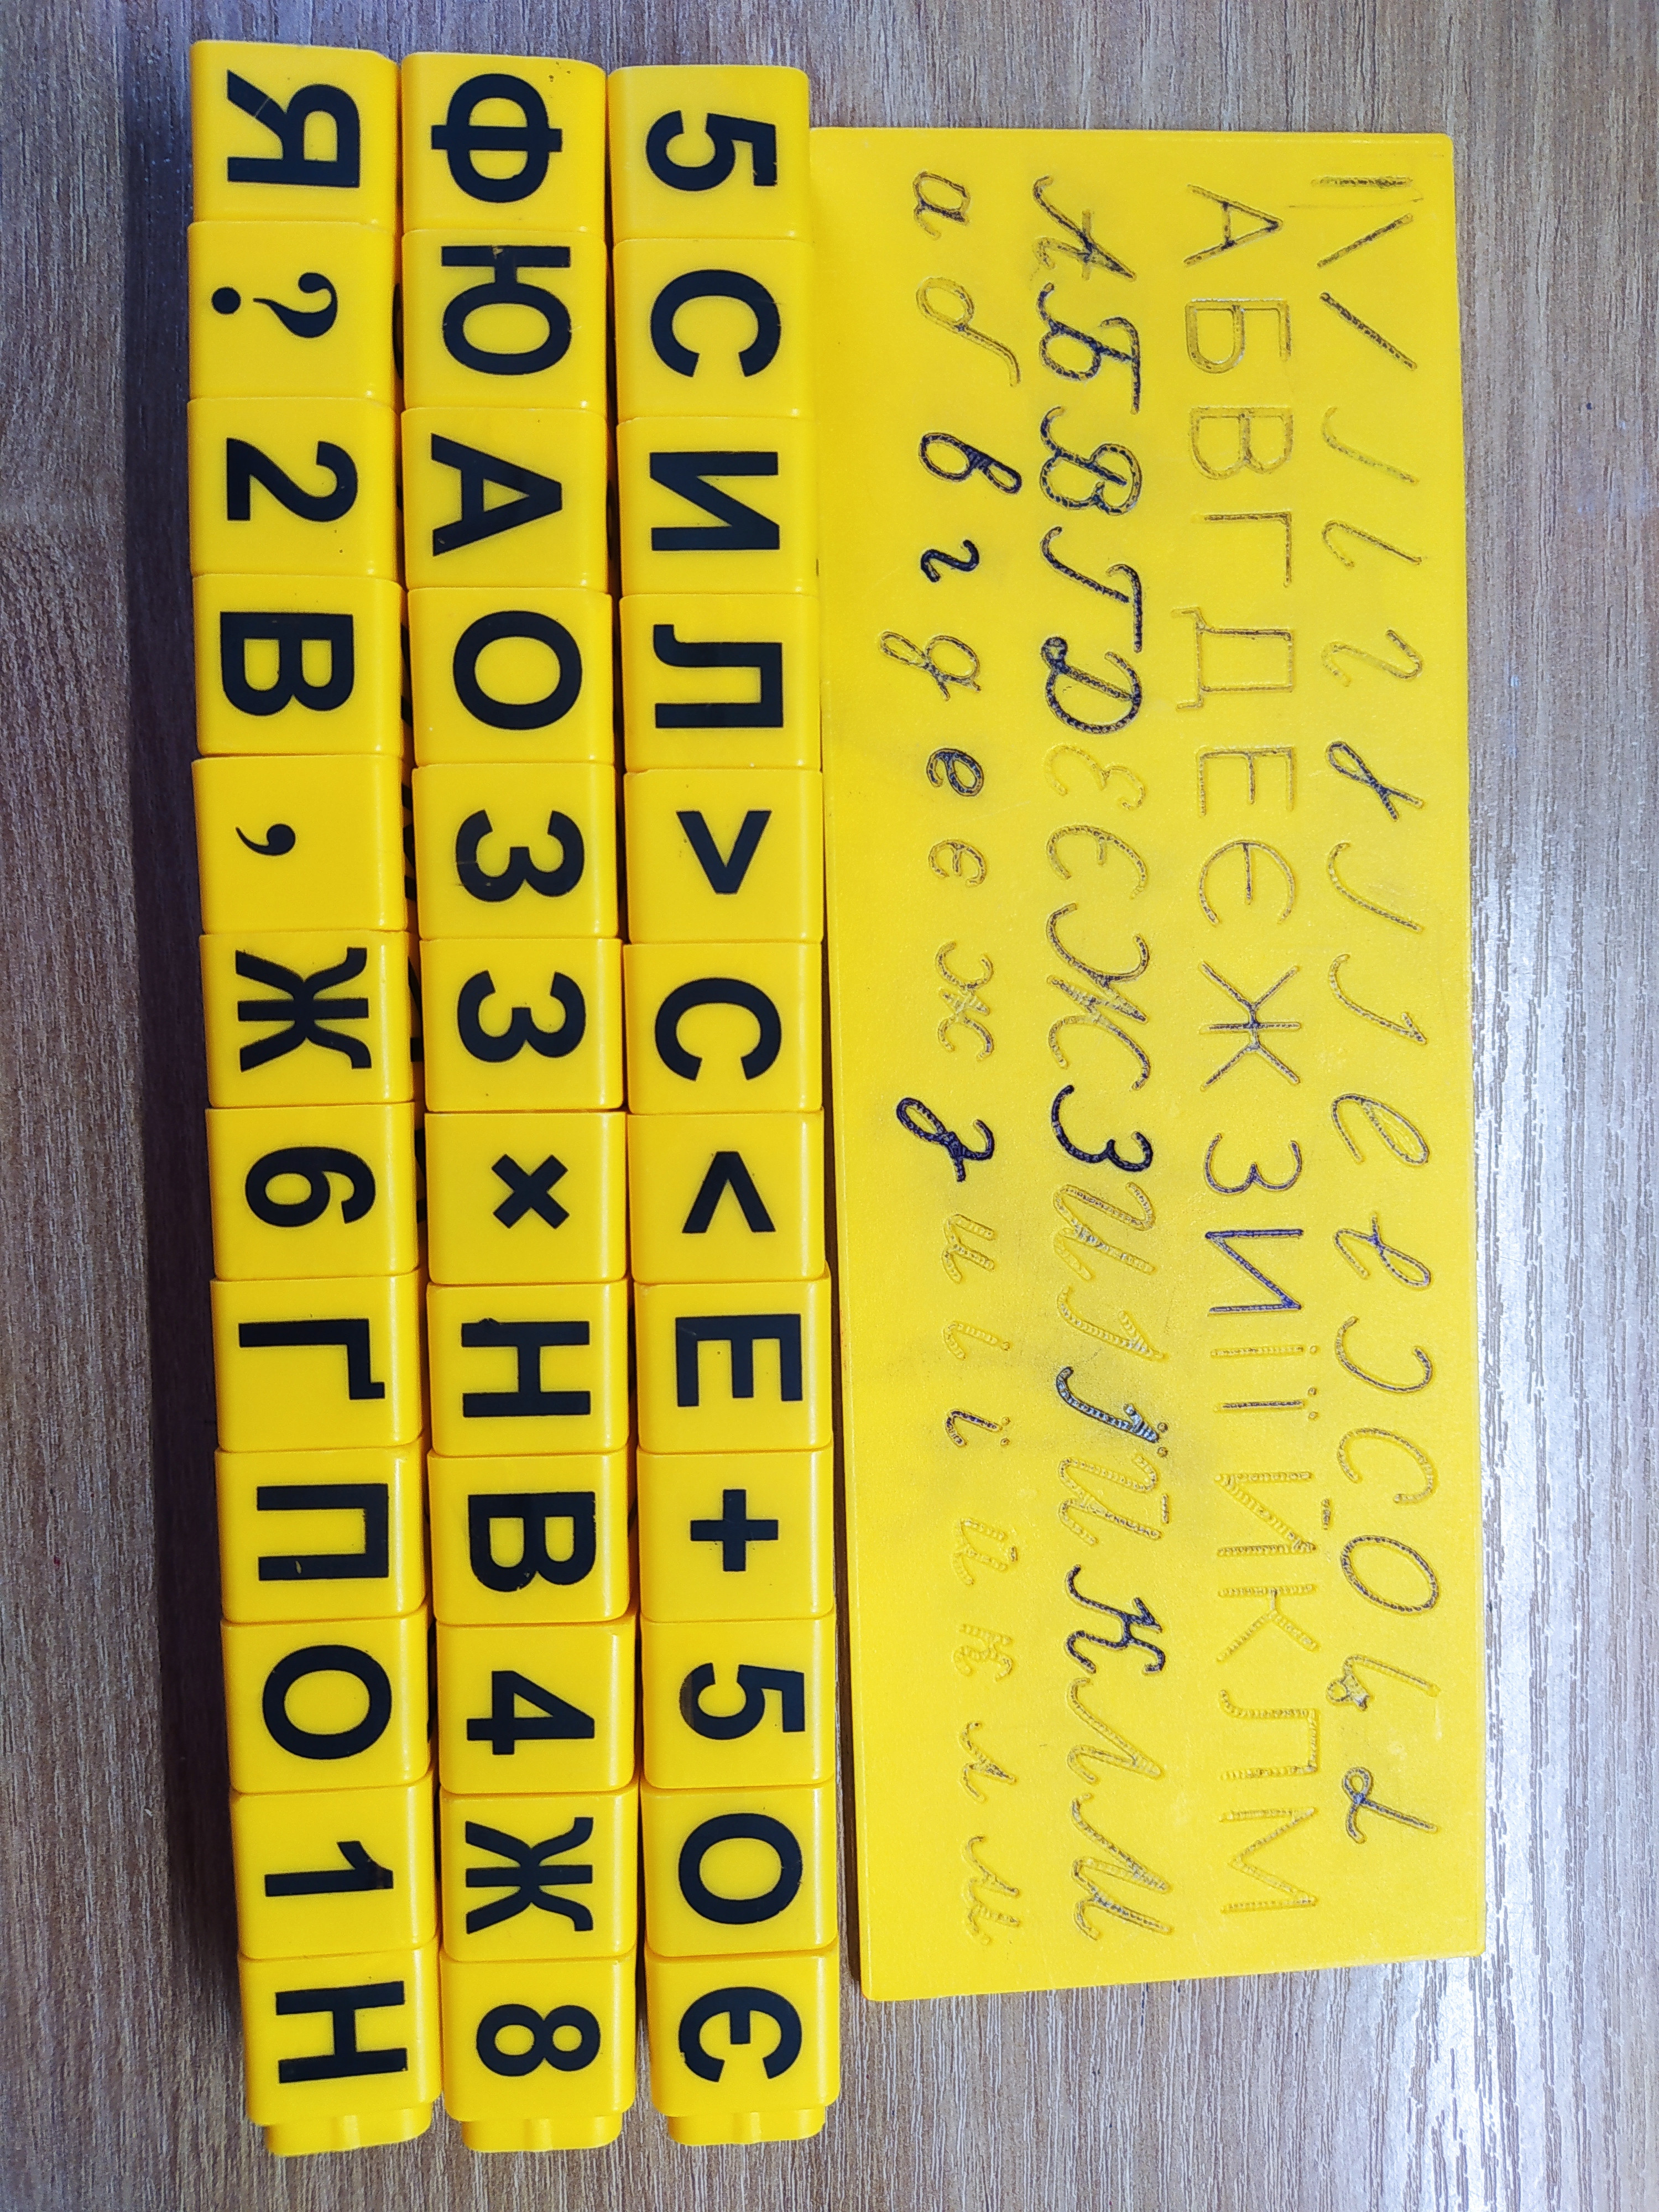 А Б В Г Д Е Є Ж З И І Ї Й К Л М
А Б В Г Д Е Є Ж З И І Ї Й К Л М
а б в г д е є ж з и і ї й к л м
5 С И Л > С < Е + 5 О Є
Ф Ю А О З З × Н В 4 Ж 8
Я ? 2 В , Ж 6 Г П О 1 Н